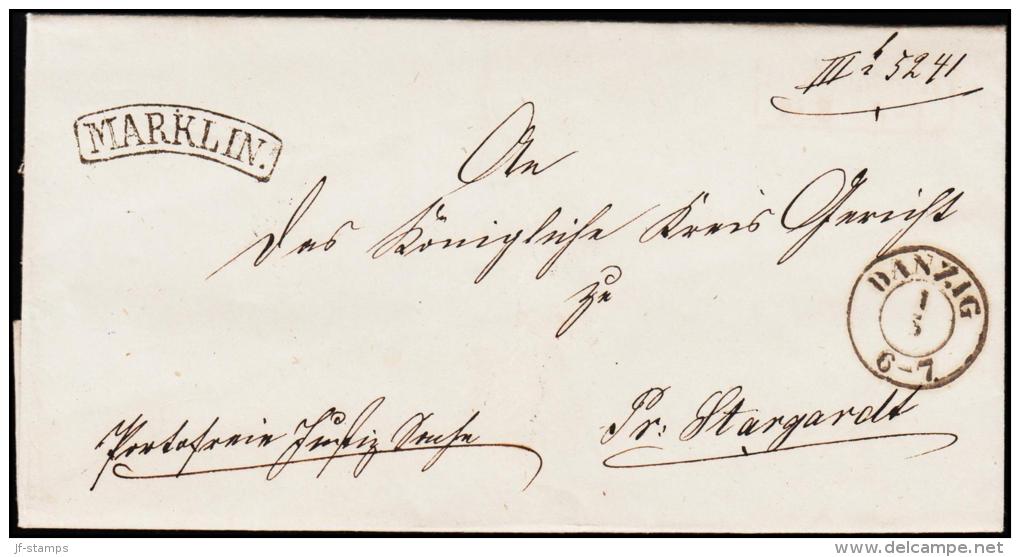 III 5241
MARKLIN.
An
das Königliche Kreis Gericht
zu
DANZIG
1
6-7
Portofreie Justiz Sache
Pr: Stargardt
jf-stamps
http://www.delcampe.net